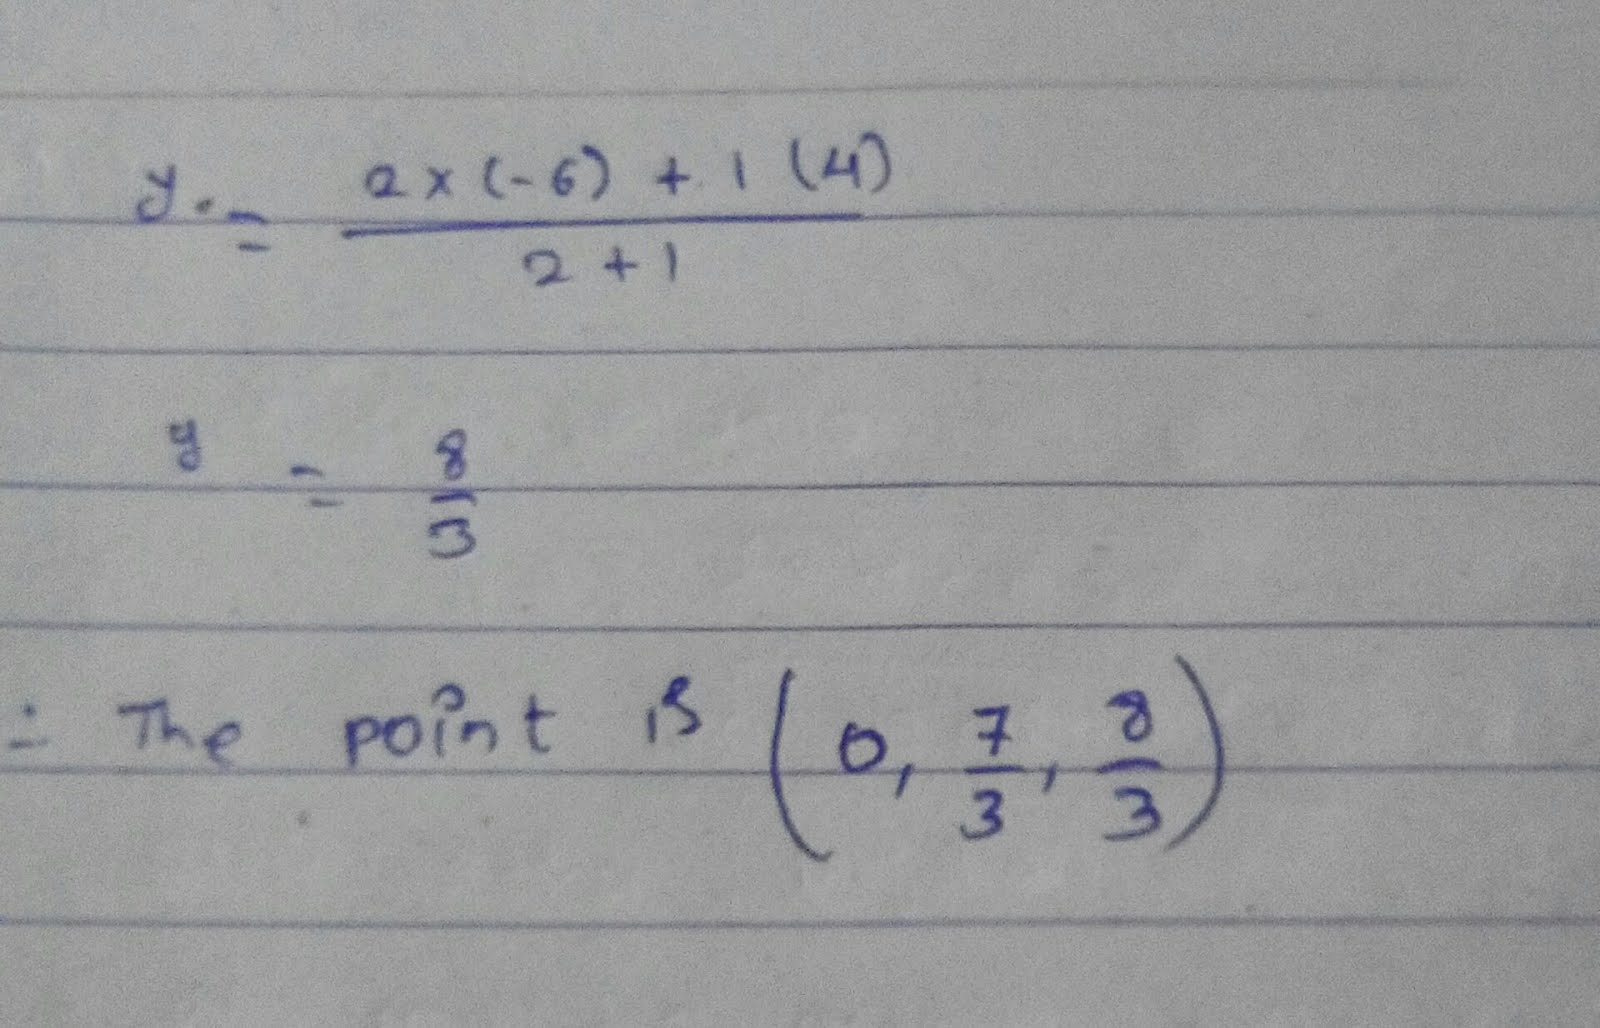 y = 2 x (-6) + 1 (4) / 2 + 1
y = 8/3
∴ The point is (0, 7/3, 8/3)